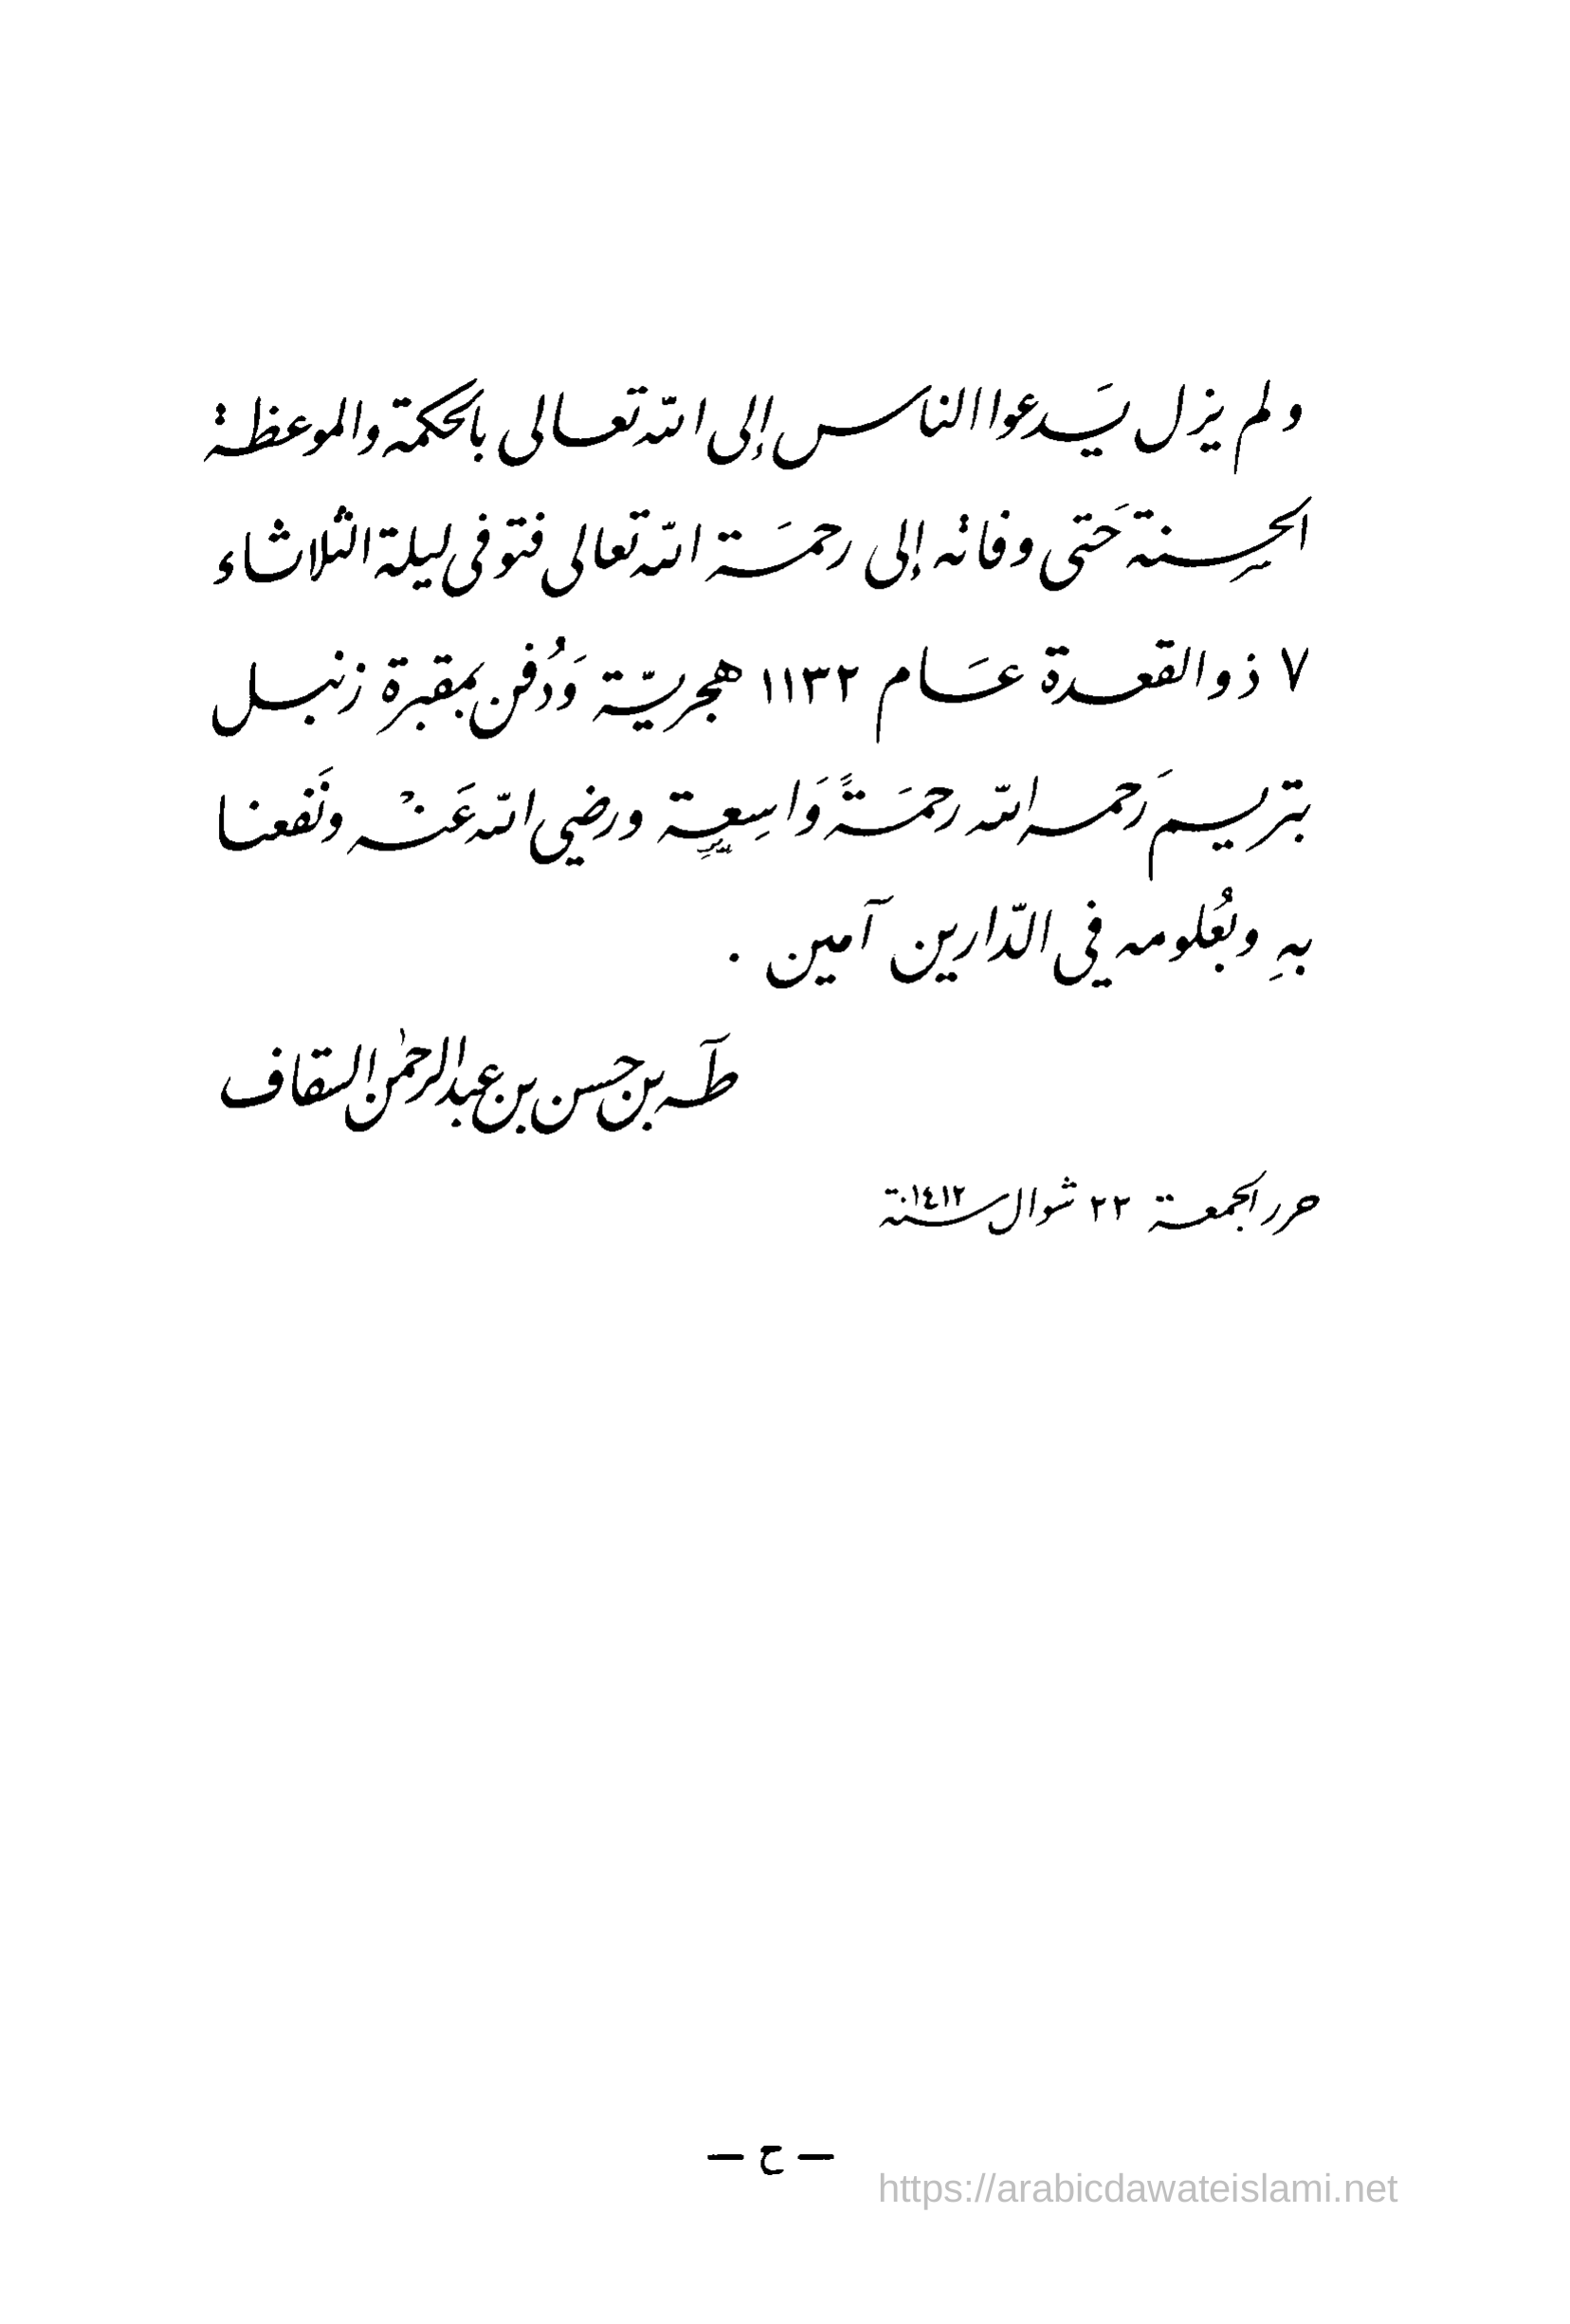 ولم يزل يَدعوا الناس إلى الله تعالى بالحكمة والموعظة
الحسنة حَتى وفاته إلى رحمَة الله تعالى فتوفى ليلة الثلاثاء
٧ ذو القعدة عَام ١١٣٢ هجريّة وَدُفن بمقبرة زنبل
بتريم رَحمه الله رحمَةً وَاسِعة ورضي الله عَنْه ونَفعنا
بهِ وبعُلومه في الدّارين آمين .
طَه بن حسن بن عبد الرحمٰن السقاف
حرر الجمعة ٢٢ شوال سنة ١٤١٢
— ح —
https://arabicdawateislami.net